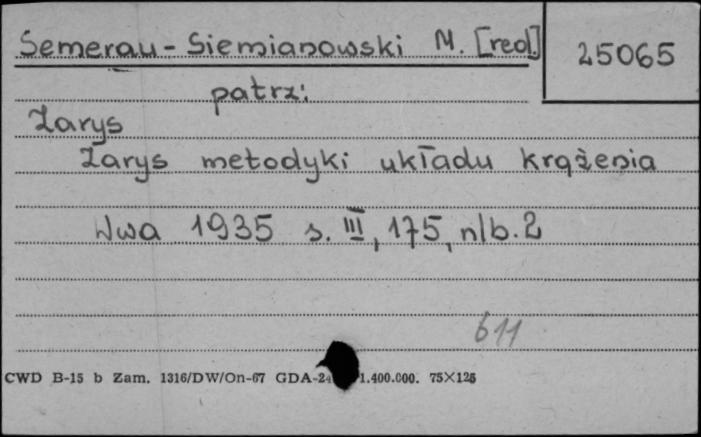 Semerau-Siemianowski M. [red.]
25065
patrz:
Zarys
Zarys metodyki układu krążenia
Wwa 1935 s. III, 175, nlb. 2
611
CWD B-15 b Zam. 1316/DW/On-67 GDA-24 1.400.000. 75×125